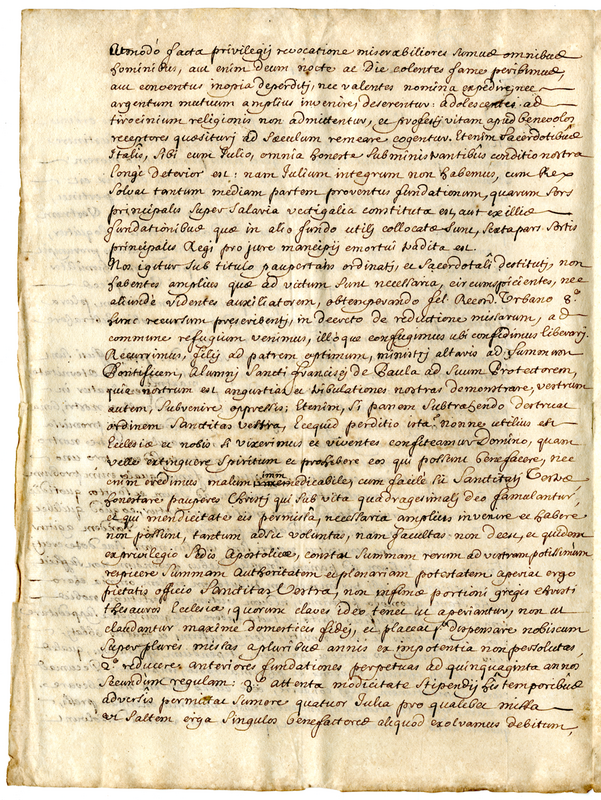 At modò facta privilegij revocatione miserabiliores sumus omnibus
hominibus, aut enim deum nocte ac Die colentes fame peribimus,
aut conventus inopia deperditj, nec valentes nomina expedire, nec
argentum mutuum amplius invenire, deserentur: adolescentes ad
tirocinium religionis non admittentur, et professj vitam apud benevolos
receptores quæsiturj ad Sæculum remeare cogentur. Etenim Sacerdotibus
Italis, sibi cum Julio, omnia honesta subministrantibus conditio nostra
longè deterior est: nam Julium integrum non habemus, cum Rex
Solvat tantum mediam partem proventus fundationum, quarum Sors
principalis super Salaria vectigalia constituta est, aut ex illis
fundationibus quæ in alio fundo utilj collocatæ sunt, Sexta pars Sortis
principalis Regi pro jure mancipij emortui tradita est.
Nos igitur sub titulo paupertatis ordinatj, et Sacerdotalj destitutj, non
habentes amplius quæ ad victum sunt necessaria, circumspicientes, nec
aliunde videntes auxiliatorem, obtemperando fel. Record. Urbano 8.º
hunc recursum prescribentj, in decreto de reductione missarum, ad
commune refugium venimus, illòque confugimus ubi confidimus liberarj.
Recurrimus, filij ad patrem optimum, ministrj altaris ad summum
Pontificem, Alumnj Sanctj franciscj de Paula ad Suum Protectorem,
quia nostrum est angustias et tribulationes nostras demonstrare, vestrum
autem, subvenire oppressis; Etenim, Si panem Subtrahendo destruat
ordinem Sanctitas vestra, Ecequid perditio ista? nonne utilius est
Ecclesiæ et nobis si vixerimus et viventes confiteamur Domino, quam
velle extinguere Spiritum et prohibere eos qui possunt benefacere, nec
enim credimus malum imm edicabile, cum facile sit Sanctitatj Vestræ
honestare pauperes Christj qui sub vita quadragesimalj deo famulantur,
et qui mendicitate eis permissa, necessaria amplius invenire et habere
non possunt, tantum adsit voluntas, nam facultas non deest, et quidem
ex privilegio Sedis Apostolicæ, constat summam rerum ad vestram potissimum
respicere Summam Authoritatem et plenariam potestatem aperiat ergo
pietatis officio Sanctitas Vestra, non infimæ portioni gregis christi
thesauros Ecclesiæ, quorum claves ideo tenet ut aperiantur, non ut
claudantur maxime domesticis fidej, et placeat 1.º dispensare nobiscum
super plures missas a pluribus annis ex impotentia non persolutas,
2.º reducere anteriores fundationes perpetuas ad quinquaginta annos
secundum regulam: 3.º attenta modicitate stipendij his temporibus
adversis permittat sumere quatuor Julia pro qualibet missa
ut saltem erga singulos benefactores aliquod exolvamus debitum,